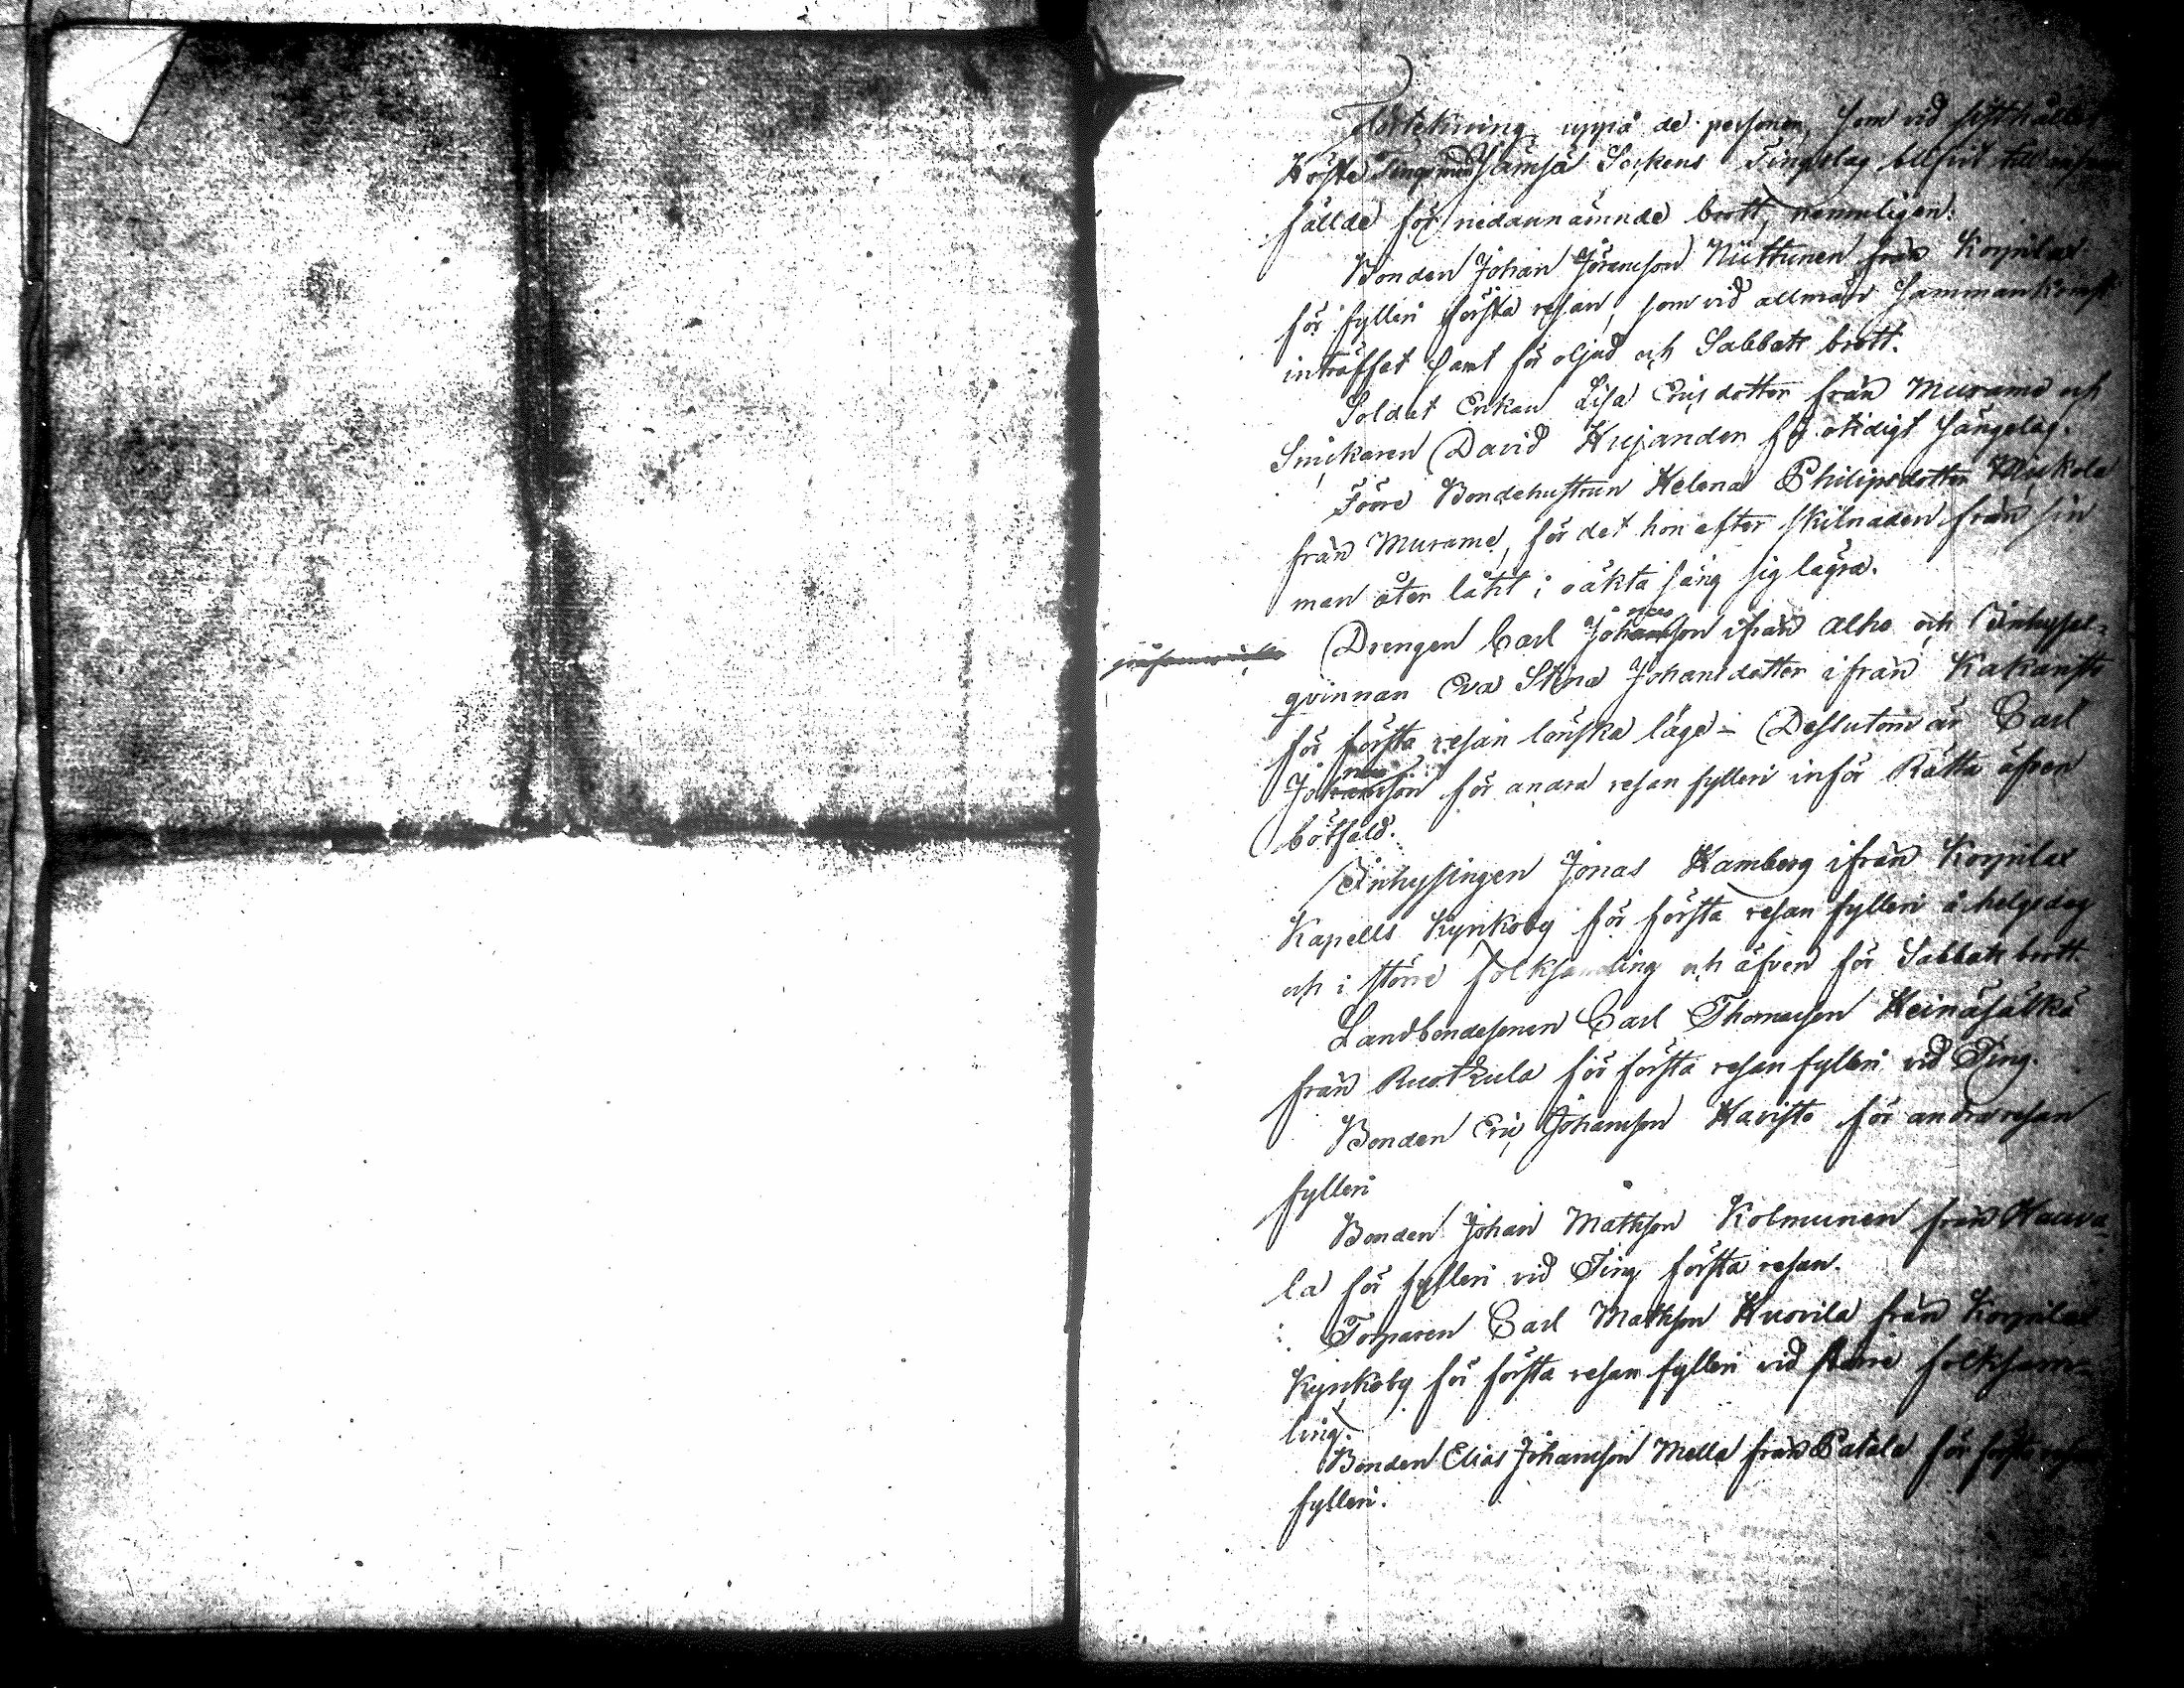 Förtekning uppå de personer, som vid sisthållne
Höste Ting med Jämsä Sockens Tingslag blifvit till
fällde för nedannämnde brott, nemmeligen:
Bonden Johan Göransson Niittunen från Korpilax
för fylleri första resan, som vid allmän Sammankomst
inträffat samt för oljud och Sabbats brott.
Soldat Enkan Lisa Ericsdotter från Murame och
Snickaren David Kujander för otidigt sängelag.
Förre Bondehustrun Helena Philipsdotter Niskola
från Murame, för det hon efter skilnaden från sin
man åter låtit i oäkta säng sig lägra.
Drengen Carl Johansson ifrån Alho och Inhyses-
qvinnan Eva Stina Johansdotter ifrån Kakaristo
för första resan lönska läge - Deslutom är Carl
Johansson för andra resan fylleri inför Rätta äfven
botfäld.
Inhysingen Jonas Hamberg ifrån Korpilax
Kapells Kyrkoby för första resan fylleri å helgedag
och i större folksamling och äfven för Sabbats brott.
Landbondesonen Carl Thomasson Heinäsälkä
från Ruotkula för första resan fylleri vid Ting.
Bonden Eric Johansson Haristo för andra resan
fylleri
Bonden Johan Mathsson Kolmunen från Haava-
la för fylleri vid Ting första resan.
Torparen Carl Mathsson Kuorila från Korpilax
Kyrkoby för första resan fylleri vid större folksam-
ling.
Bonden Elias Johansson Mella från Patala för första resan
fylleri.